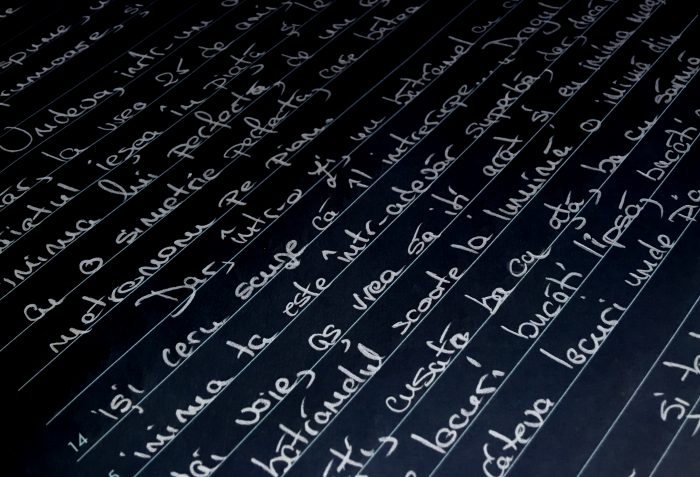 spune,
frumoase, și
Undeva, într-un
la vreo 25 de ani
băiatul ieșea în piață și le
inima lui perfectă, de un
cu o simetrie perfectă, care bătea
metronom pe pian.
Dar, într-o zi, un bătrânel cu o
își ceru scuze că îl întrerupe... Dragul
14 inima ta este într-adevăr superbă, dar dacă
voie, aș vrea să îți arăt și eu inima mea
bătrânelul scoate la lumină o inimă din
cusută ba cu ață, ba cu sârmă
locuri bucăți lipsă, bucăți
câteva locuri unde
și